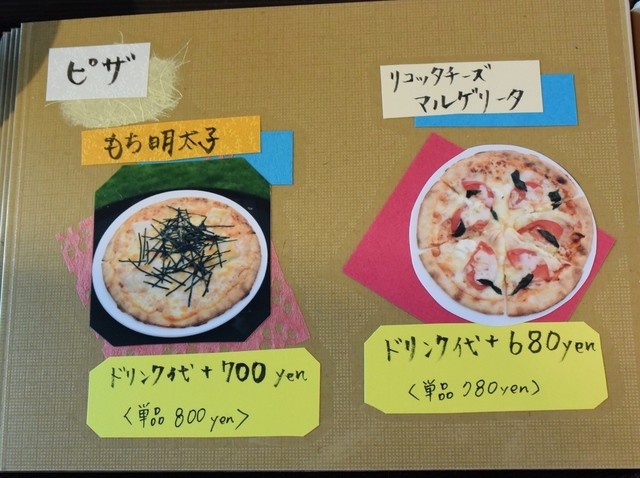 ピザ
もち明太子
ドリンク代+700yen
〈単品 800yen〉
リコッタチーズ
マルゲリータ
ドリンク代+680yen
〈単品 780yen〉